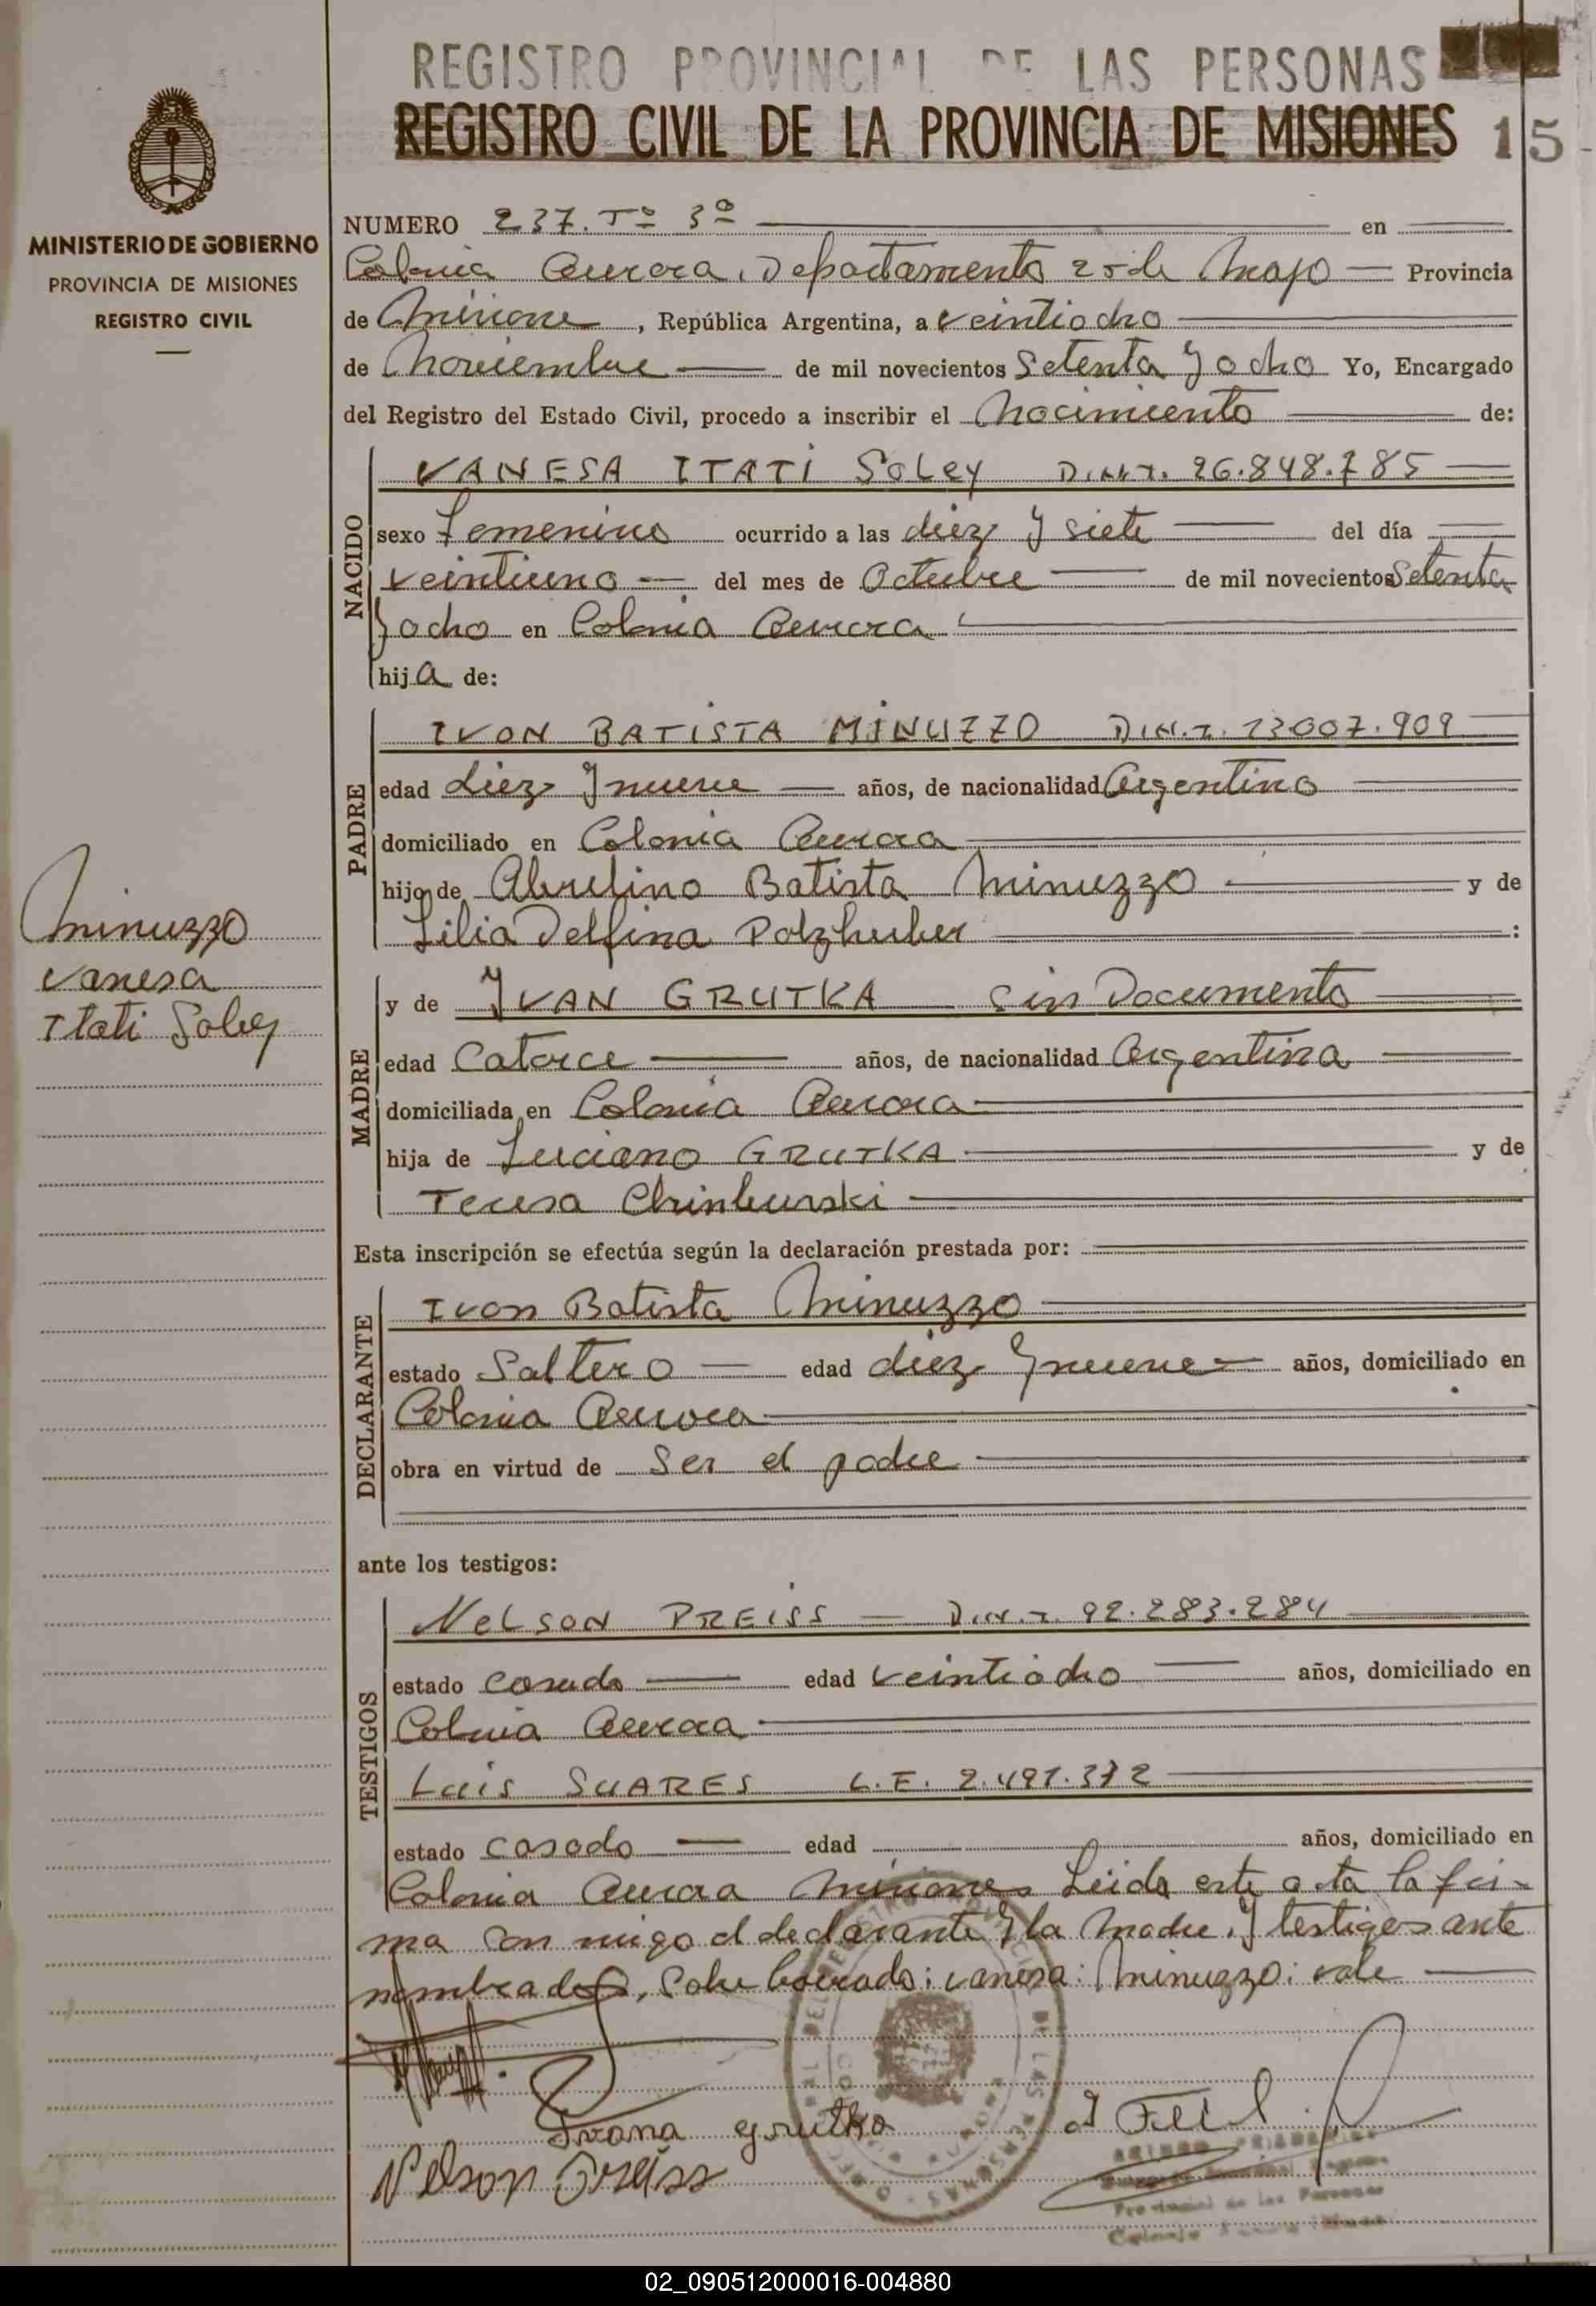 REGISTRO PROVINCIAL DE LAS PERSONAS
REGISTRO CIVIL DE LA PROVINCIA DE MISIONES 15
MINISTERIO DE GOBIERNO
PROVINCIA DE MISIONES
REGISTRO CIVIL
NUMERO 237. Tº 3º en
Colonia Aurora, Departamento 25 de Mayo Provincia
de Misiones, República Argentina, a veintiocho
de Noviembre de mil novecientos Setenta y ocho Yo, Encargado
del Registro del Estado Civil, procedo a inscribir el Nacimiento de:
NACIDO
VANESA ITATI SOLEY D.N.I. 26.848.785
sexo Femenino ocurrido a las diez y siete del día
veintiuno del mes de Octubre de mil novecientos Setenta
y ocho en Colonia Aurora
hija de:
PADRE
IVON BATISTA MINUZZO D.N.I. 13007.909
edad diez y nueve años, de nacionalidad Argentino
domiciliado en Colonia Aurora
hijo de Abrelino Batista Minuzzo y de
Lilia Delfina Polzhuber :
Minuzzo
Vanesa
Itati Soley
MADRE
y de IVAN GRUTKA Sin Documento
edad Catorce años, de nacionalidad Argentina
domiciliada en Colonia Aurora
hija de Luciano GRUTKA y de
Teresa Chinburski
Esta inscripción se efectúa según la declaración prestada por:
DECLARANTE
Ivon Batista Minuzzo
estado Soltero edad diez y nueve años, domiciliado en
Colonia Aurora
obra en virtud de Ser el padre
ante los testigos:
TESTIGOS
NELSON PREISS D.N.I. 92.283.284
estado casado edad veintiocho años, domiciliado en
Colonia Aurora
LUIS SUARES L.E. 2.491.372
estado casado edad años, domiciliado en
Colonia Aurora Misiones Leida este acta la fir-
ma con migo el declarante y la Madre, y testigos ante
nombrados, Sobre borrado: vanesa: Minuzzo: vale
Ivana grutka
Nelson Preiss
Provincial de las Personas
02_090512000016-004880